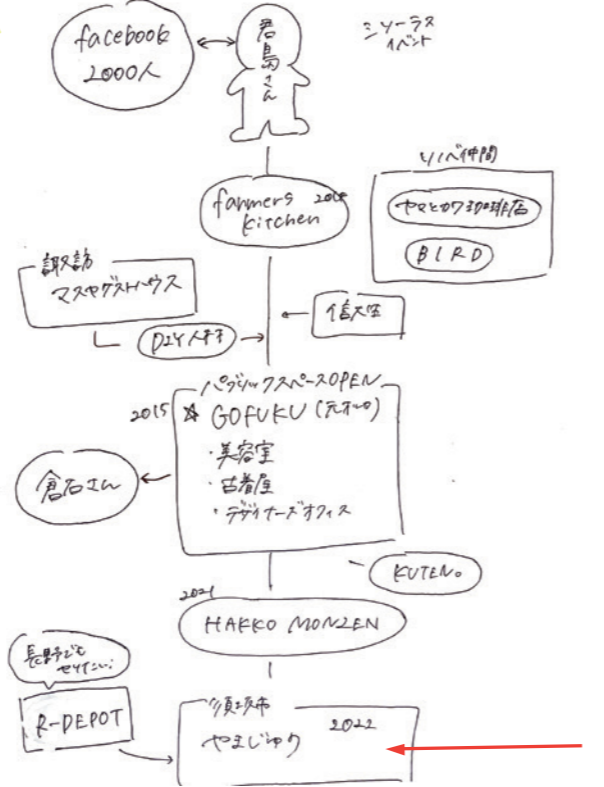 facebook
2000人
君島さん
シソーラス
イベント
farmers 2014
kitchen
リノベ仲間
ヤマとカワ珈琲店
BIRD
諏訪
マスヤゲストハウス
DIY人材
信大生
パブリックスペースOPEN
2015 ☆ GOFUKU(元オーレ)
・美容室
・古着屋
・デザイナーズオフィス
倉石さん
KUTEN。
2021
HAKKO MONZEN
長野でも
やりたい!
R-DEPOT
須坂市
やまじゅう 2022